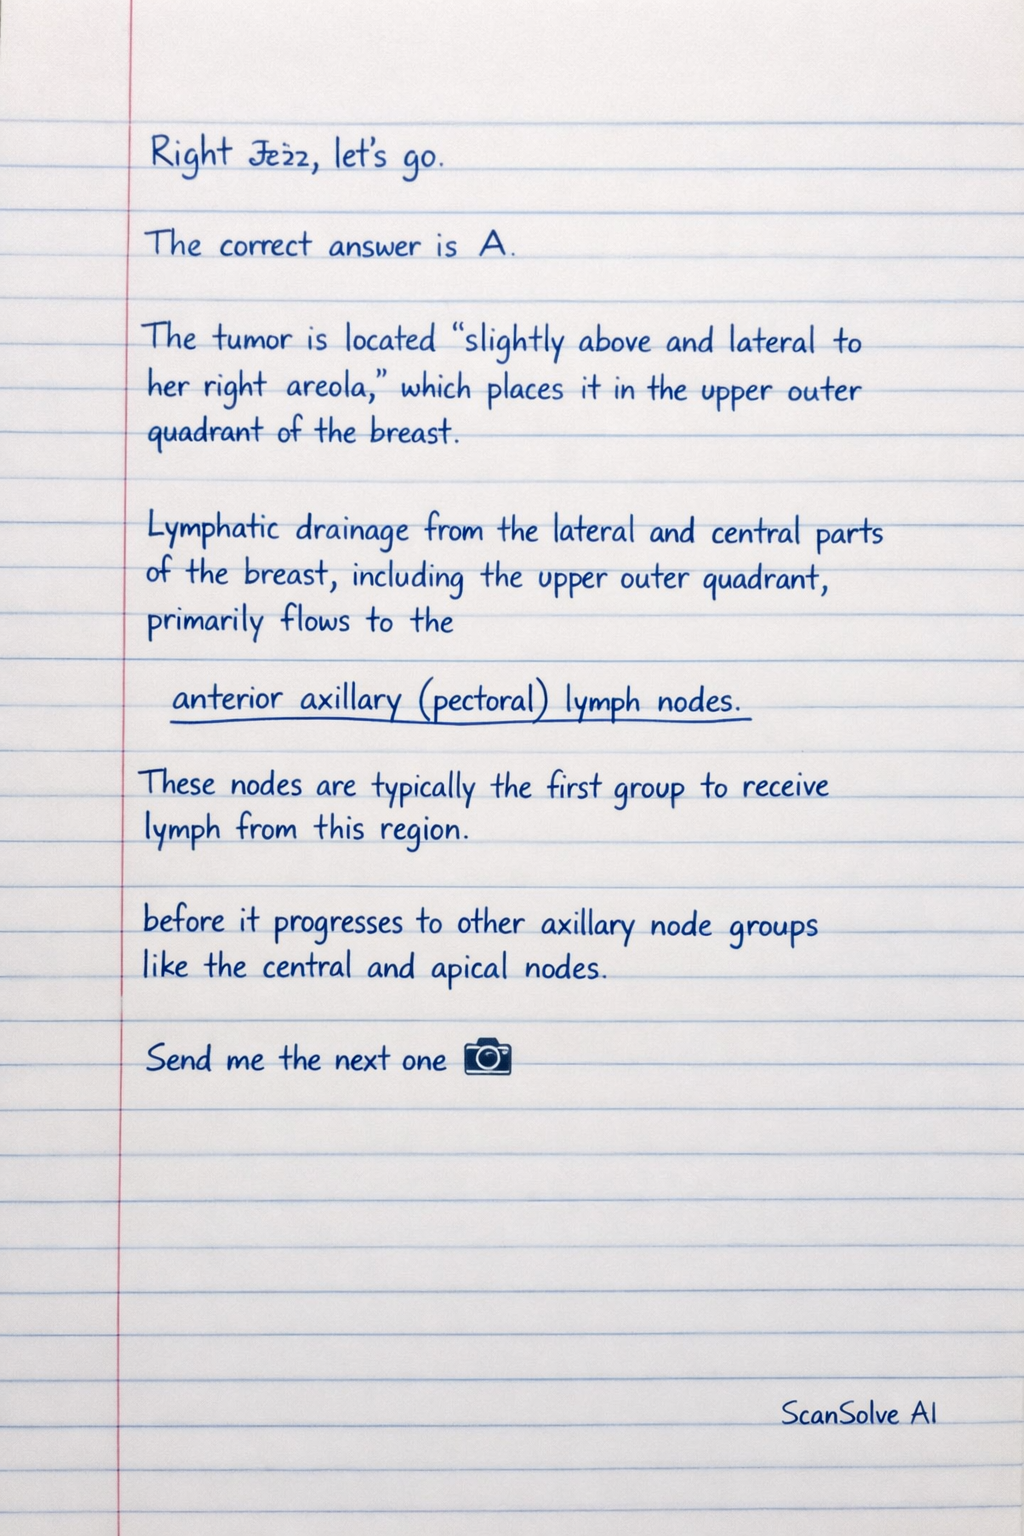 Right Jezz, let's go.
The correct answer is A.
The tumor is located “slightly above and lateral to
her right areola,” which places it in the upper outer
quadrant of the breast.
Lymphatic drainage from the lateral and central parts
of the breast, including the upper outer quadrant,
primarily flows to the
anterior axillary (pectoral) lymph nodes.
These nodes are typically the first group to receive
lymph from this region.
before it progresses to other axillary node groups
like the central and apical nodes.
Send me the next one
ScanSolve AI